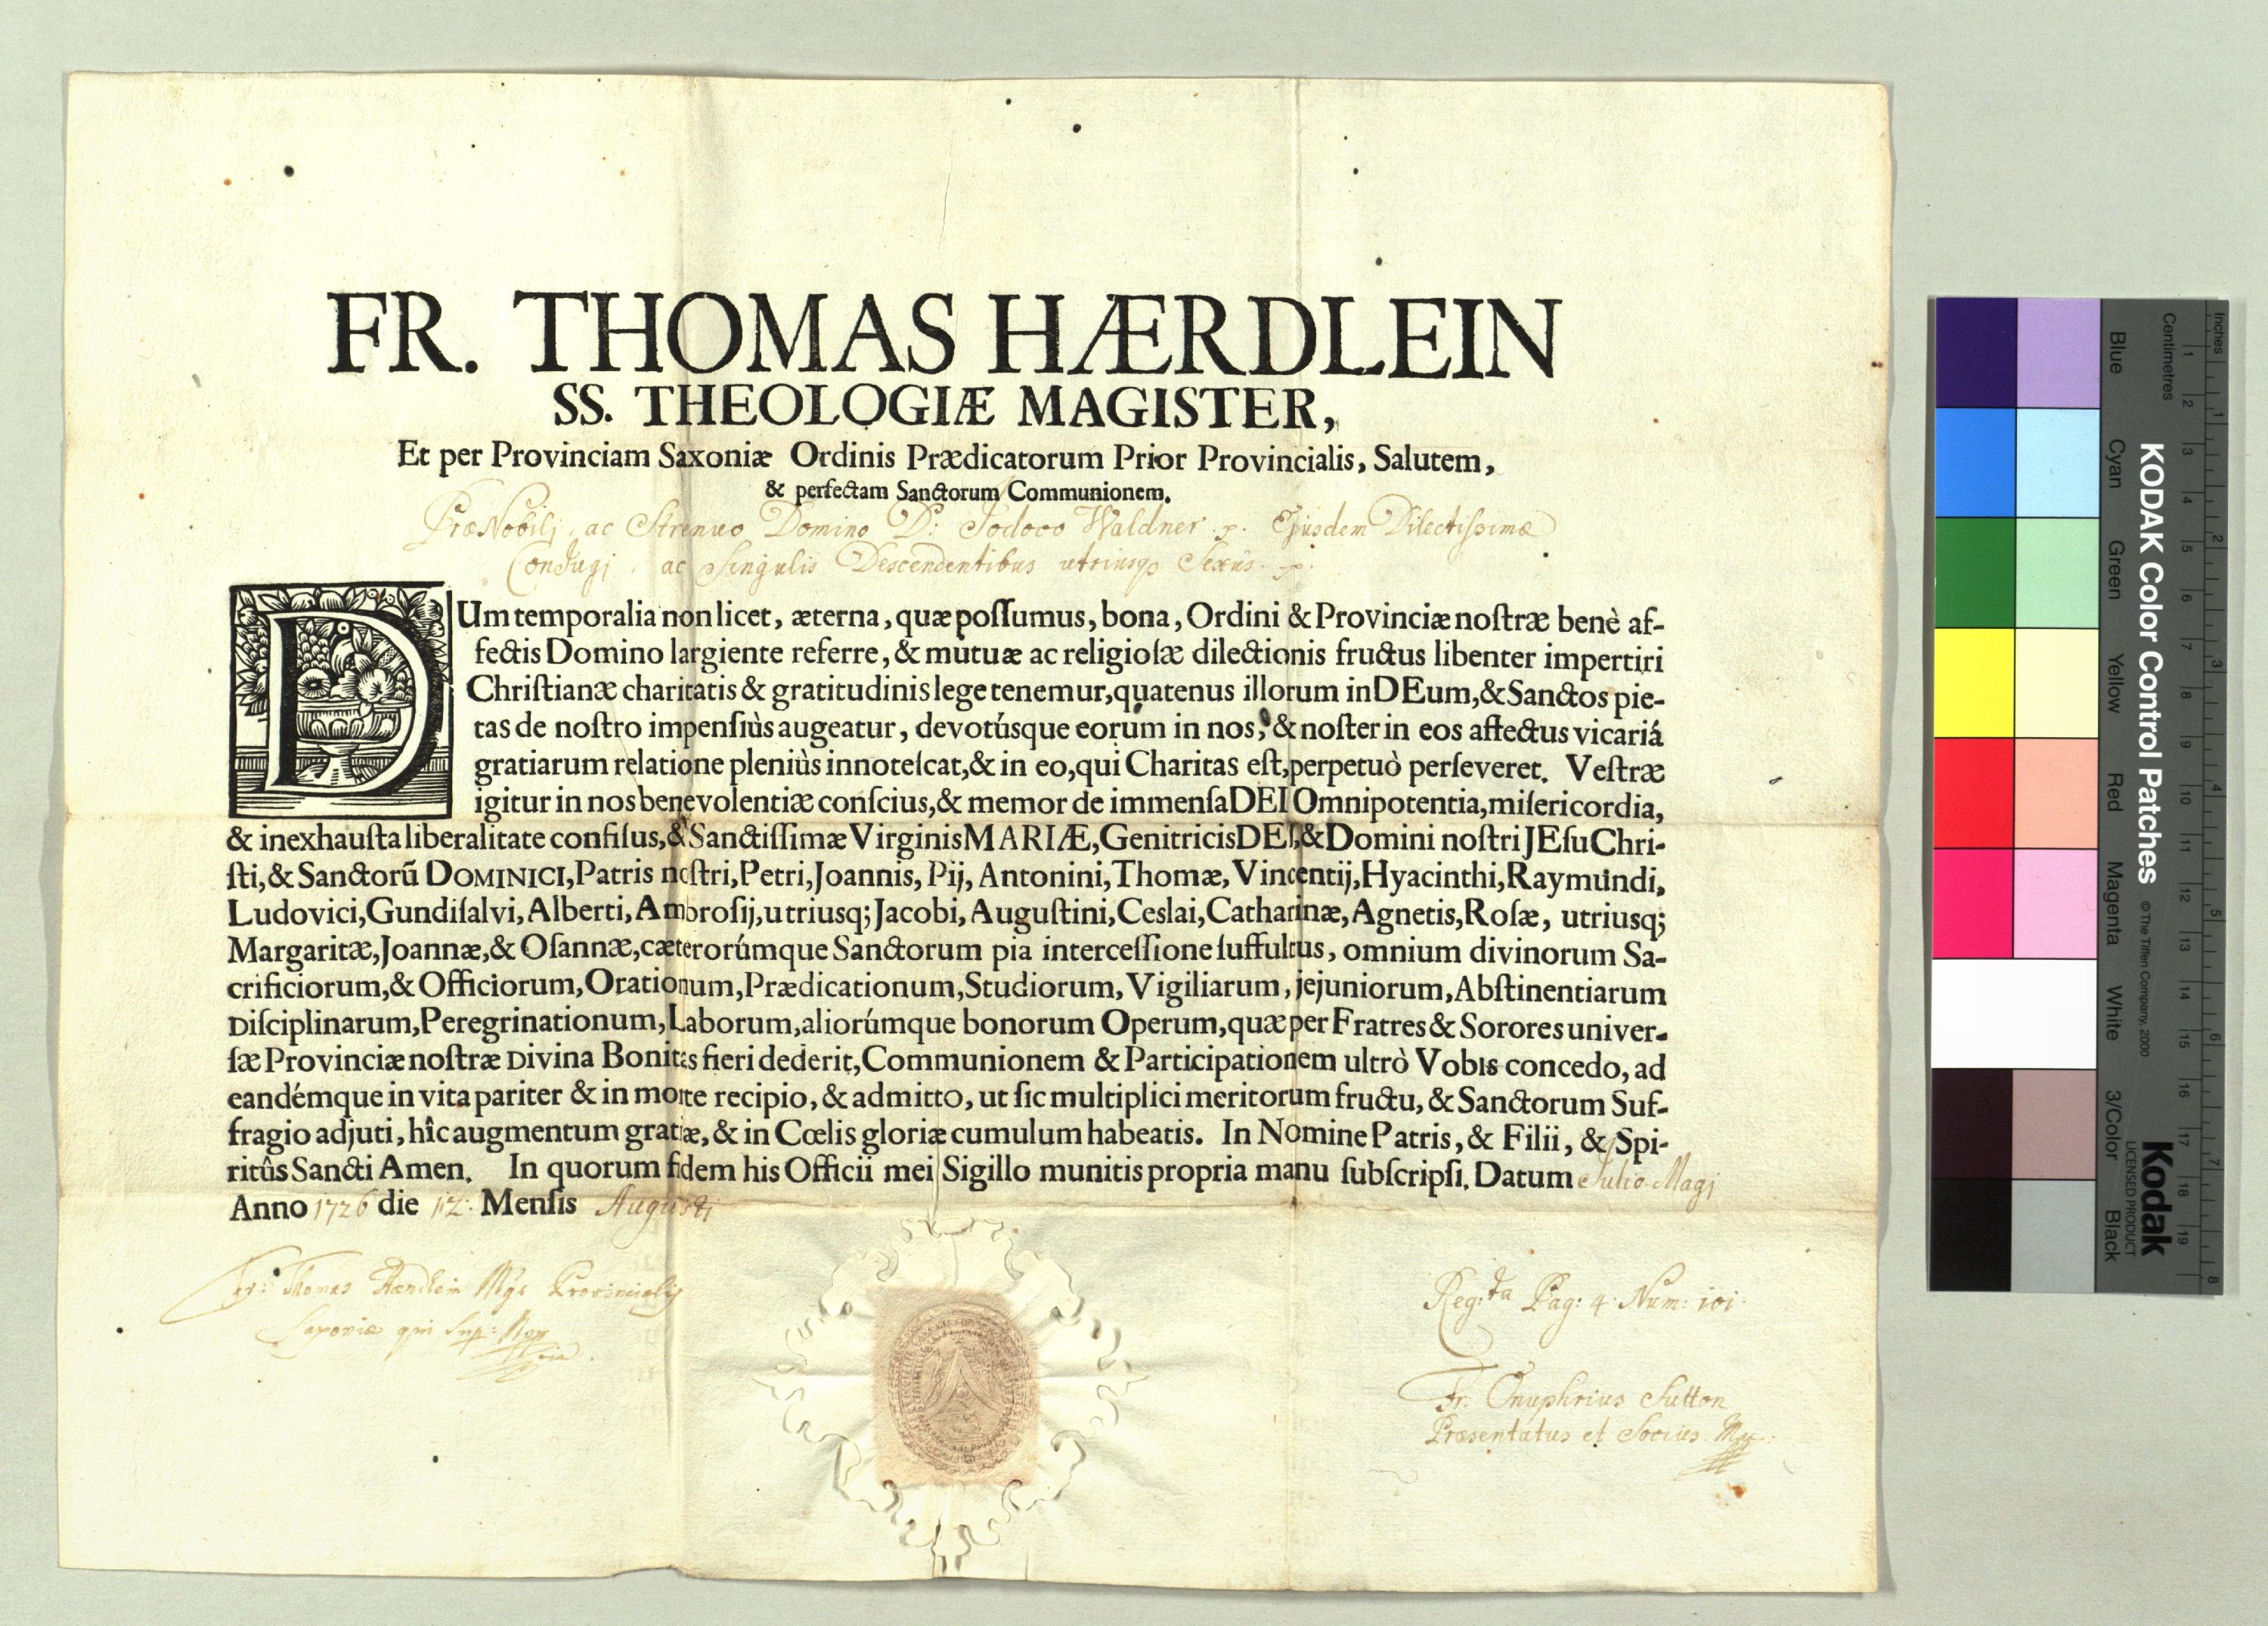 FR. THOMAS HÆRDLEIN
SS. THEOLOGIÆ MAGISTER,
Et per Provinciam Saxoniæ Ordinis Prædicatorum Prior Provincialis, Salutem,
& perfectam Sanctorum Communionem.
PræNobilj, ac Strenuo Domino D: Jodoco Waldner p. Ejusdem Dilectissimæ
Conjugj, ac Singulis Descendentibus utriusq Sexûs. p.
DUm temporalia non licet, æterna, quæ poſſumus, bona, Ordini & Provinciæ noſtræ benè af-
fectis Domino largiente referre, & mutuæ ac religioſæ dilectionis fructus libenter impertiri
Chriſtianæ charitatis & gratitudinis lege tenemur, quatenus illorum in DEum, & Sanctos pie-
tas de noſtro impenſiùs augeatur, devotúsque eorum in nos, & noſter in eos affectus vicariá
gratiarum relatione pleniùs innoteſcat, & in eo, qui Charitas eſt, perpetuò perſeveret. Veſtræ
igitur in nos benevolentiæ conſcius, & memor de immenſa DEI Omnipotentia, miſericordia,
& inexhauſta liberalitate confiſus, & Sanctiſſimæ Virginis MARIÆ, Genitricis DEI, & Domini noſtri JEſu Chri-
ſti, & Sanctorũ DOMINICI, Patris noſtri, Petri, Joannis, Pij, Antonini, Thomæ, Vincentij, Hyacinthi, Raymundi,
Ludovici, Gundiſalvi, Alberti, Ambroſij, utriusq; Jacobi, Auguſtini, Ceslai, Catharinæ, Agnetis, Roſæ, utriusq;
Margaritæ, Joannæ, & Oſannæ, cæterorúmque Sanctorum pia interceſſione ſuffultus, omnium divinorum Sa-
crificiorum, & Officiorum, Orationum, Prædicationum, Studiorum, Vigiliarum, jejuniorum, Abſtinentiarum
Diſciplinarum, Peregrinationum, Laborum, aliorúmque bonorum Operum, quæ per Fratres & Sorores univer-
ſæ Provinciæ noſtræ Divina Bonitas fieri dederit, Communionem & Participationem ultrò Vobis concedo, ad
eandémque in vita pariter & in morte recipio, & admitto, ut ſic multiplici meritorum fructu, & Sanctorum Suf-
fragio adjuti, hîc augmentum gratiæ, & in Cœlis gloriæ cumulum habeatis. In Nomine Patris, & Filii, & Spi-
ritûs Sancti Amen. In quorum fidem his Officii mei Sigillo munitis propria manu ſubſcripſi. Datum Julio Magj
Anno 1726 die 12. Menſis Augusti
Fr: Thomas Hærdlein Mgr Provincialis
Saxoniæ qui Sup:
Reg:ta Pag: 4. Num: 101.
Fr. Onuphrius Sutton
Præsentatus et Socius
KODAK Color Control Patches
© The Tiffen Company, 2000
Kodak
LICENSED PRODUCT
Inches
Centimetres
Blue
Cyan
Green
Yellow
Red
Magenta
White
3/Color
Black
1 2 3 4 5 6 7 8 9 10 11 12 13 14 15 16 17 18 19
1 2 3 4 5 6 7 8